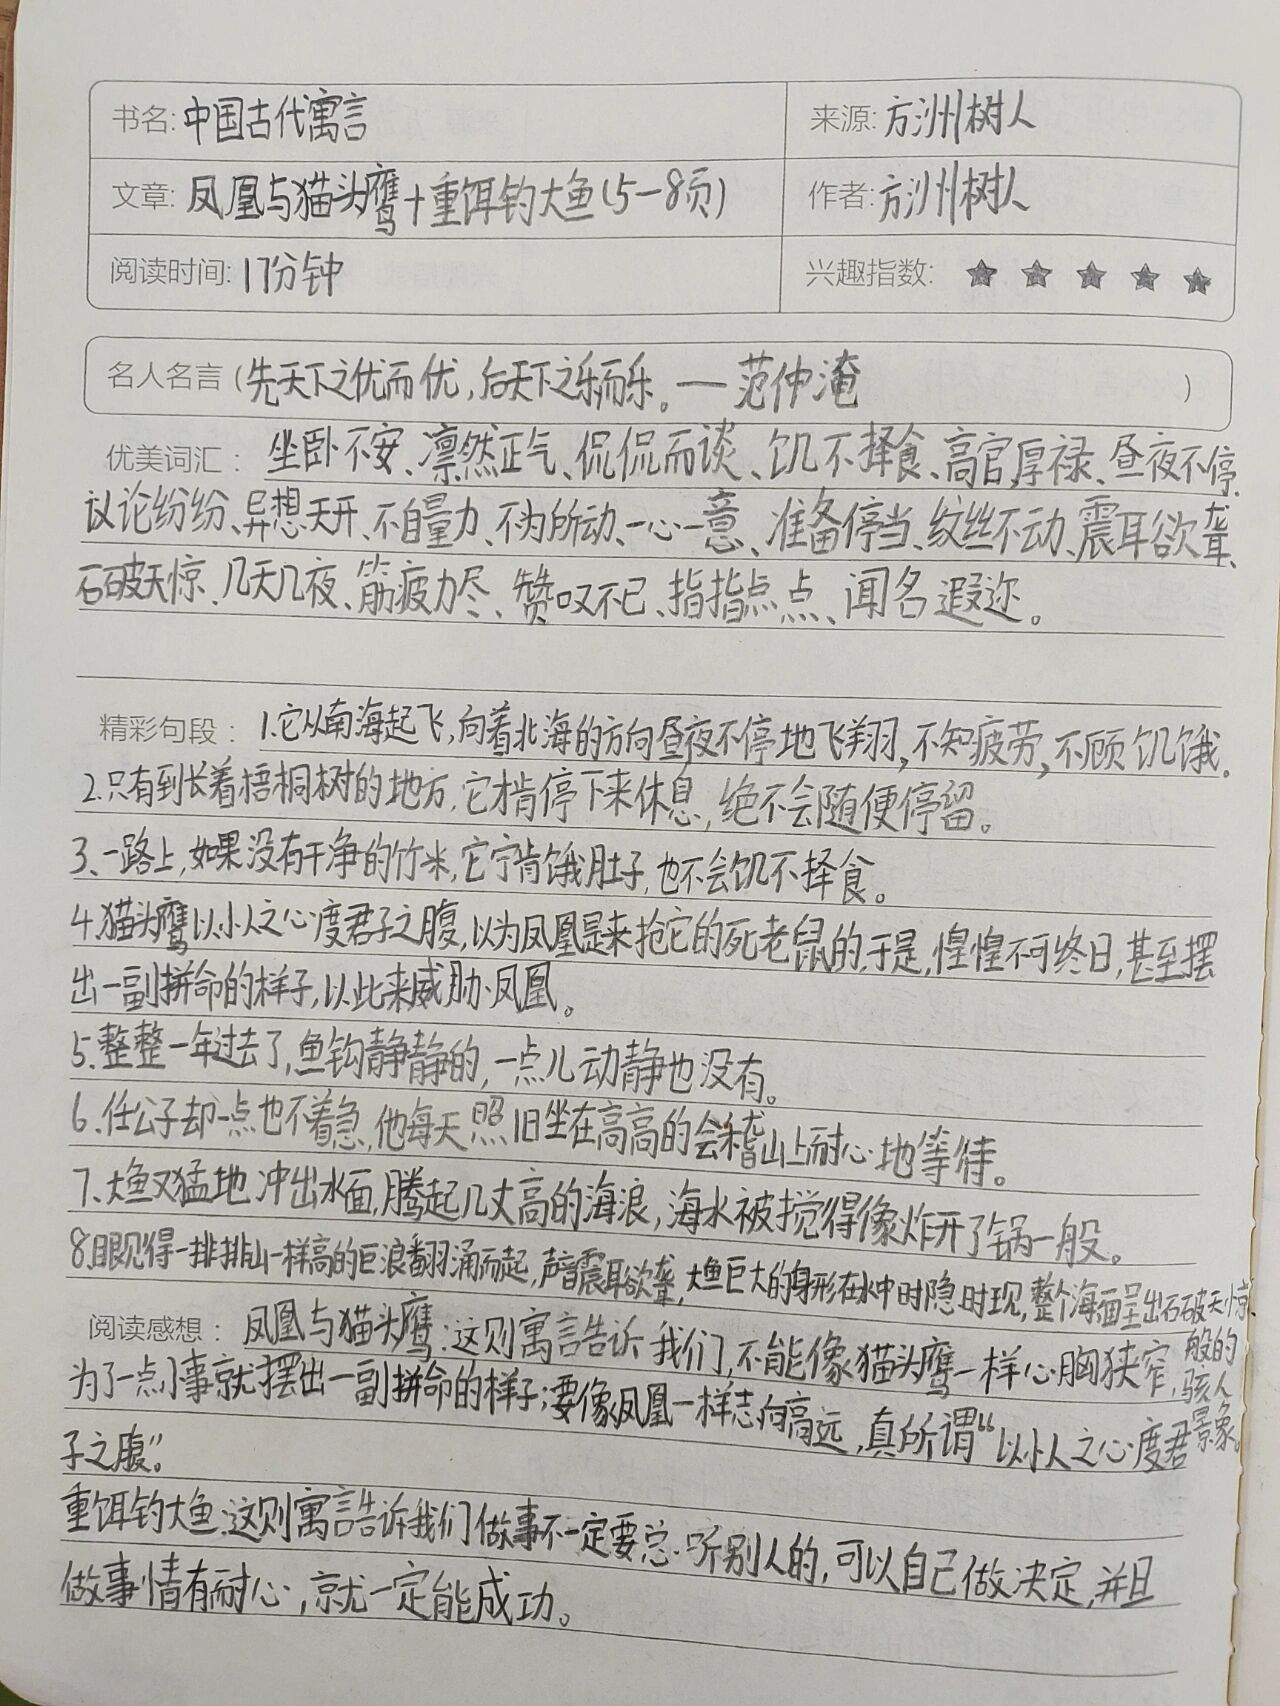 书名: 中国古代寓言
来源: 方洲树人
文章: 凤凰与猫头鹰+重饵钓大鱼(5-8页)
作者: 方洲树人
阅读时间: 17分钟
兴趣指数: ★ ★ ★ ★ ★
名人名言 (先天下之优而优,后天下之乐而乐。——范仲淹 )
优美词汇: 坐卧不安、凛然正气、侃侃而谈、饥不择食、高官厚禄、昼夜不停、
议论纷纷、异想天开、不自量力、不为所动、一心一意、准备停当、纹丝不动、震耳欲聋、
石破天惊、几天几夜、筋疲力尽、赞叹不已、指指点点、闻名遐迩。
精彩句段: 1.它从南海起飞,向着北海的方向昼夜不停地飞翔,不知疲劳,不顾饥饿。
2.只有到长着梧桐树的地方,它才肯停下来休息,绝不会随便停留。
3、一路上,如果没有干净的竹米,它宁肯饿肚子,也不会饥不择食。
4.猫头鹰以小人之心度君子之腹,以为凤凰是来抢它的死老鼠的,于是,惶惶不可终日,甚至摆
出一副拼命的样子,以此来威胁凤凰。
5.整整一年过去了,鱼钩静静的,一点儿动静也没有。
6.任公子却一点也不着急,他每天照旧坐在高高的会稽山上耐心地等待。
7、大鱼又猛地冲出水面,腾起几丈高的海浪,海水被搅得像炸开了锅一般。
8.眼见得一排排山一样高的巨浪翻涌而起,声音震耳欲聋,大鱼巨大的身形在水中时隐时现,整个海面呈出石破天惊
般的
骇人
景象。
阅读感想: 凤凰与猫头鹰:这则寓言告诉我们,不能像猫头鹰一样心胸狭窄,
为了一点小事就摆出一副拼命的样子;要像凤凰一样志向高远,真所谓“以小人之心度君
子之腹”。
重饵钓大鱼:这则寓言告诉我们做事不一定要总听别人的,可以自己做决定,并且
做事情有耐心,就一定能成功。